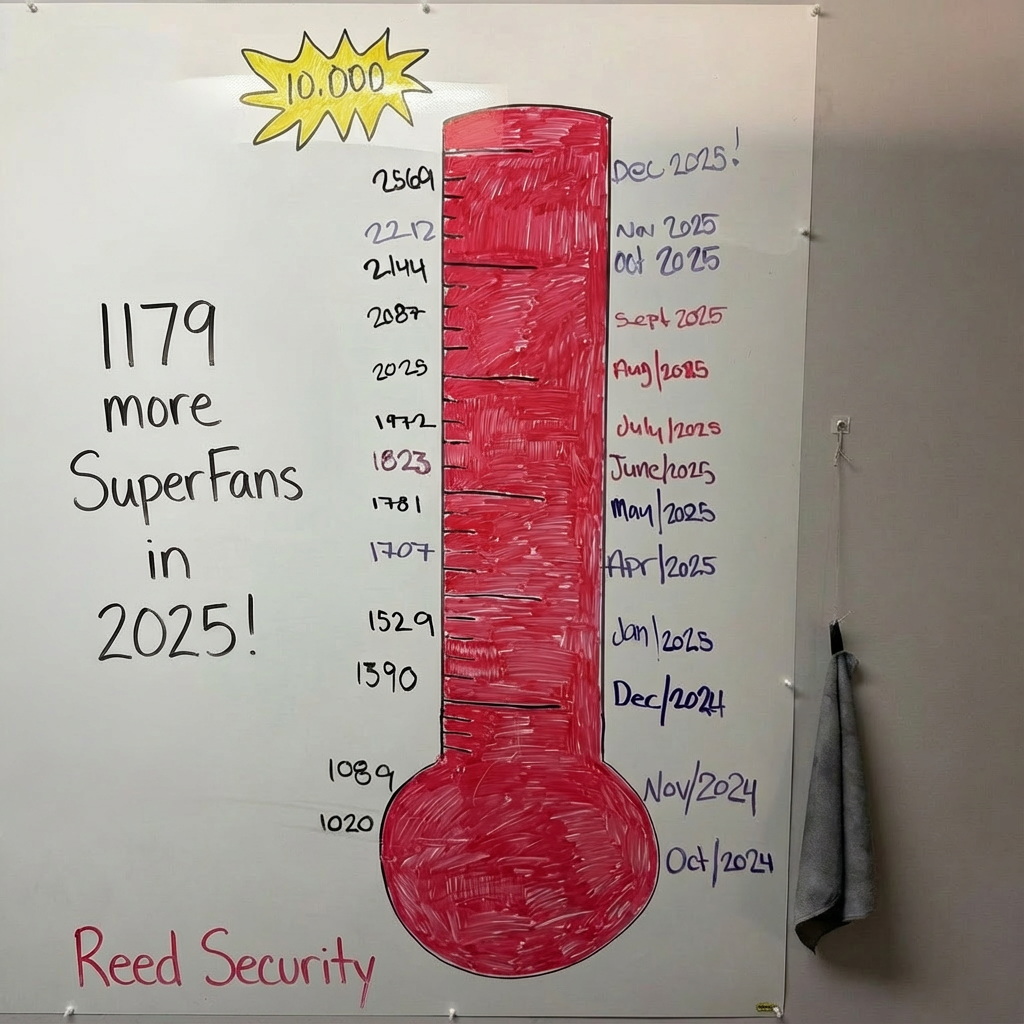 10.000
2569 Dec 2025!
2212 Nov 2025
2144 Oct 2025
2087 Sept 2025
2025 Aug/2025
1972 July/2025
1823 June/2025
1781 May/2025
1707 Apr/2025
1529 Jan/2025
1390 Dec/2024
1089 Nov/2024
1020 Oct/2024
1179
more
SuperFans
in
2025!
Reed Security